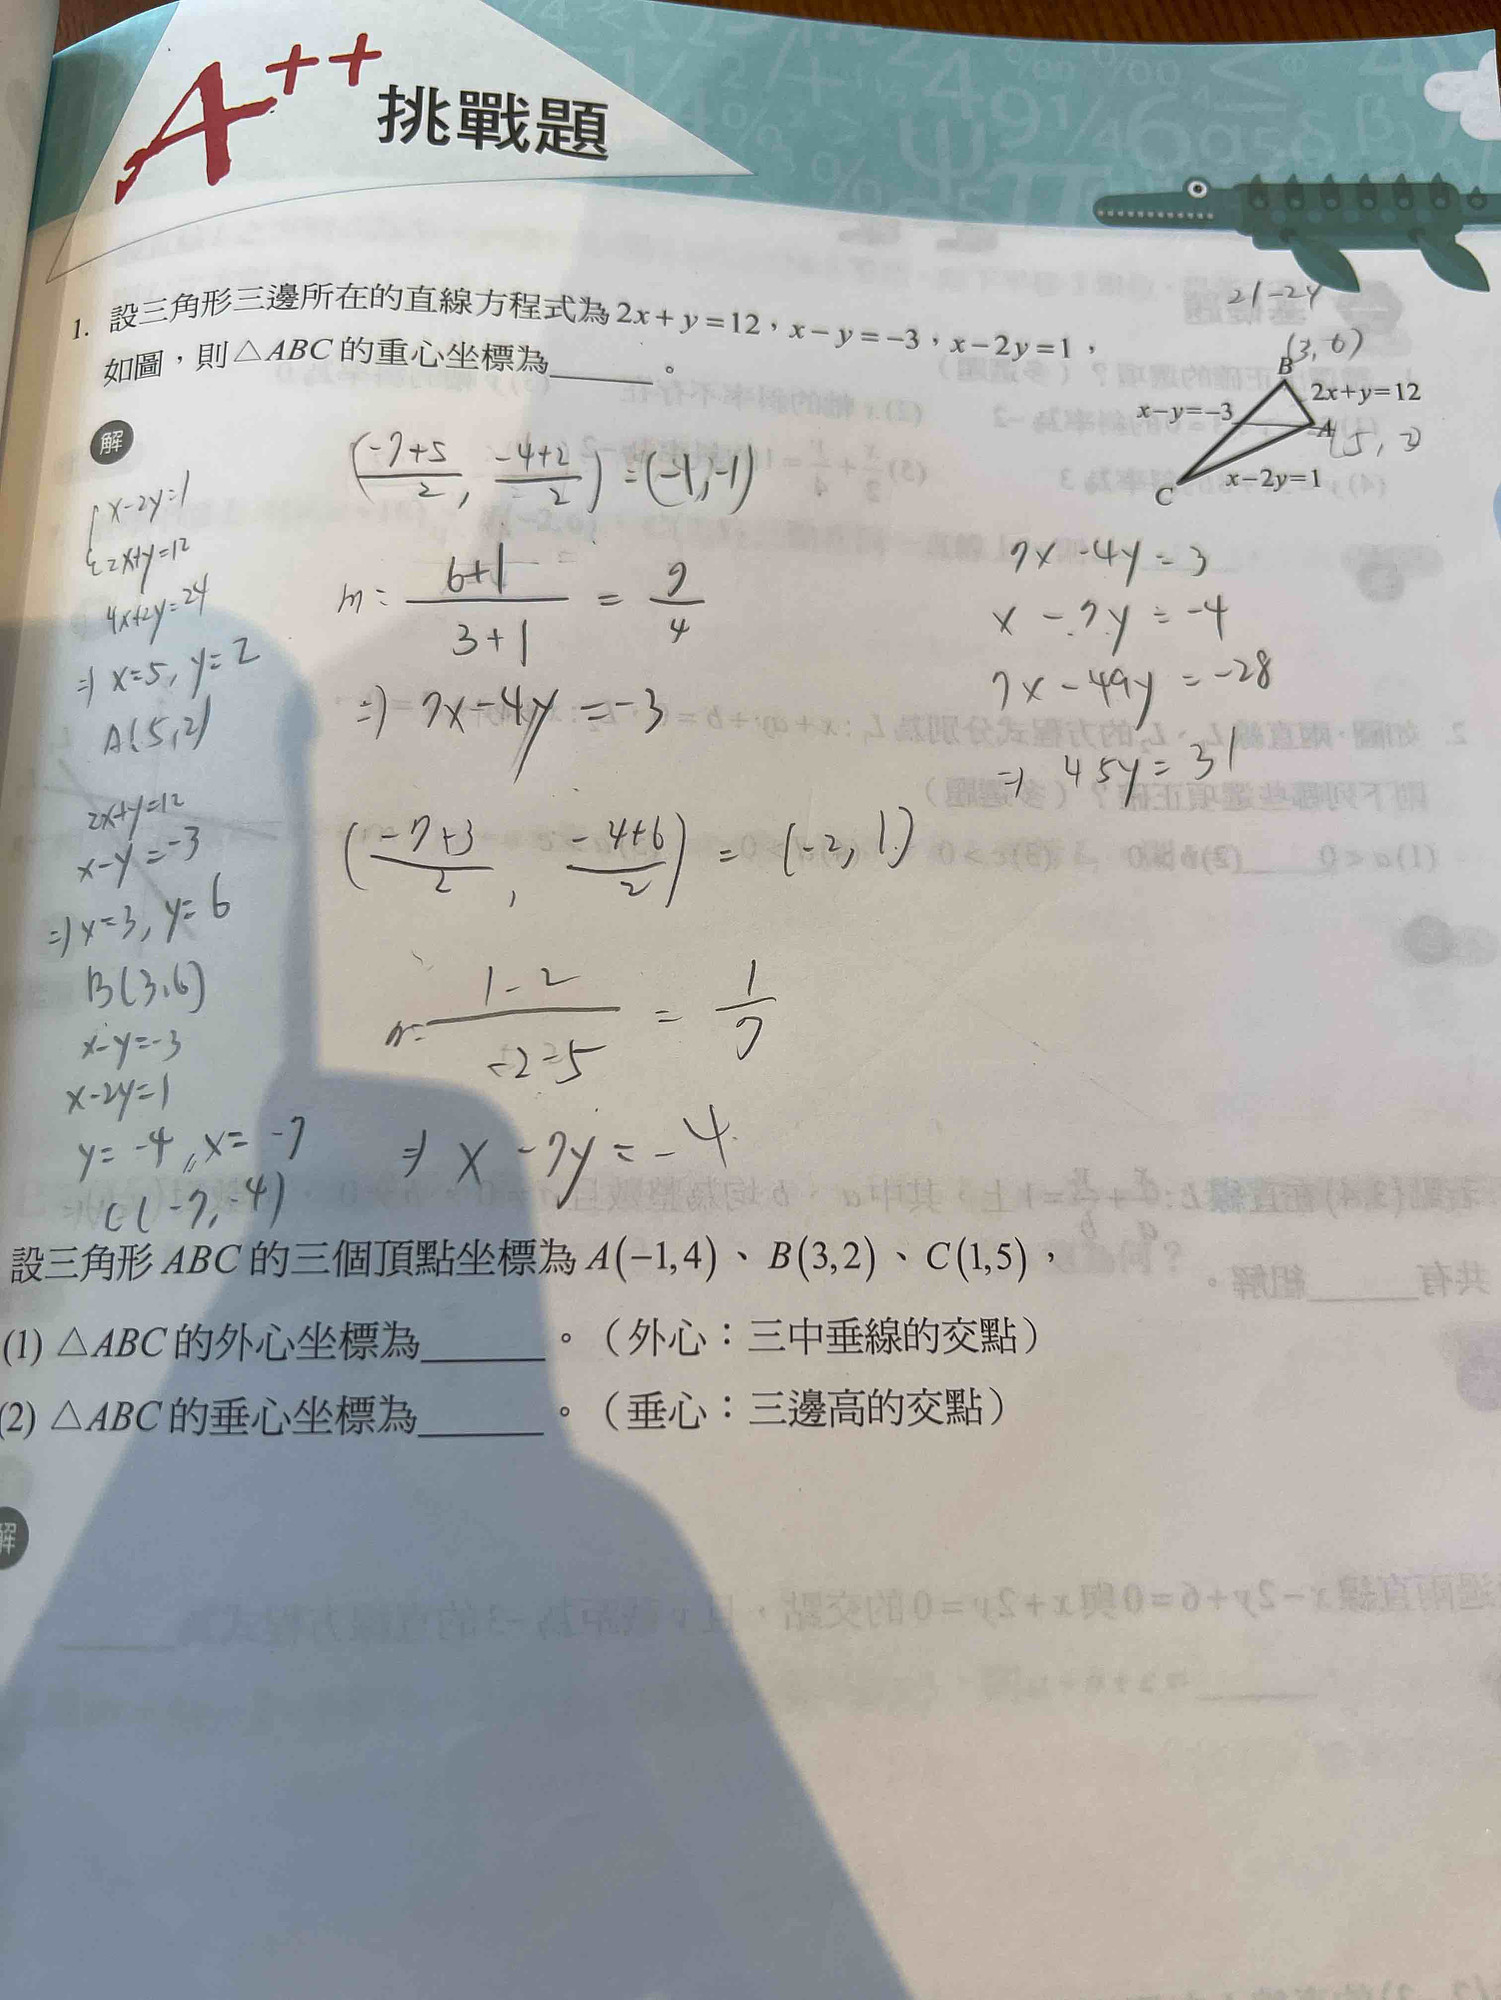 A++ 挑戰題
1. 設三角形三邊所在的直線方程式為 2x+y=12，x−y=−3，x−2y=1，
如圖，則△ABC 的重心坐標為______。
21-24
(3,6)
B
2x+y=12
x−y=−3
A(5,2)
x−2y=1
C
解
x-2y=1
2x+y=12
4x+2y=24
⇒ x=5, y=2
A(5,2)
2x+y=12
x-y=-3
⇒ x=3, y=6
B(3,6)
x-y=-3
x-2y=1
y=-4, x=-7
C(-7,-4)
(-7+5/2, -4+2/2)=(-1,-1)
m= 6+1/3+1 = 7/4
⇒ 7x-4y=-3
(-7+3/2, -4+6/2) = (-2,1)
m= 1-2/-2-5 = 1/7
⇒ x-7y=-4
7x-4y=3
x-7y=-4
7x-49y=-28
⇒ 45y=31
設三角形 ABC 的三個頂點坐標為 A(−1,4)、B(3,2)、C(1,5)，
(1) △ABC 的外心坐標為______。（外心：三中垂線的交點）
(2) △ABC 的垂心坐標為______。（垂心：三邊高的交點）
解